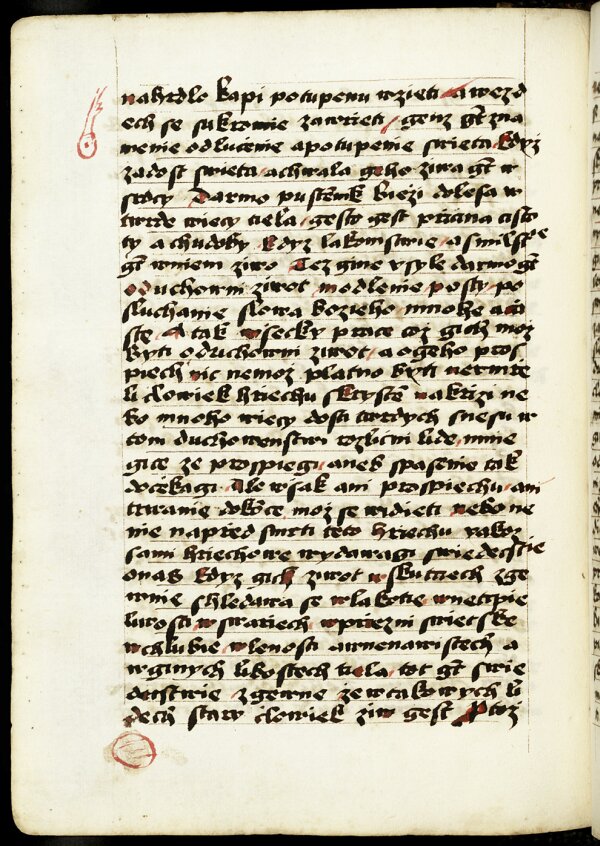 nahrdlo kapi potupenu wzieti a wezd
ech se sukromie zawrieti genz gt zna
menie odlucenie apotupenie swieta kdyz
zadost swieta achwala geho ziwa gt w
srdcy Darmo pustenik biezi dolesa w
twrde wiecy tiela gesto gest prziczina cisto
ty a chudoby kdyz lakomstwie asmilstwie
gt wniem ziwo Tez gine vsyle darmo gt
oduchowni ziwot modlenie posty po
sluchanie slowa bozieho mnohe a
A tak wsecky prace coz gich moz
byti oduchowni ziwot a ogeho pros
piech nic nemoz platno byti nevmrze
li clowiek hriechu skryste nakrizi ne
bo mnoho wiecy dosti twrdych snesu w
tom duchowenstwi rozlicni lide mnie
gice ze prospiegi aneb spasenie tak
docekagi Ale wsak ani prospiechu ani
trwanie dokonce moz se widieti nebo ne
nie napred smrti teto hriechu yakoz
sami hriechowe wydawagi swiedectwie
onas kdyz gich ziwot wskutciech zge
wnie shledawa se wlakotie wnetrpie
liwosti wswariech wprzizni swietske
wchlubie wlenosti a
wginych libostech tiela tot gt swie
dectwie zgewne zewtakowych li
dech stary clowiek ziw gest Ptoz